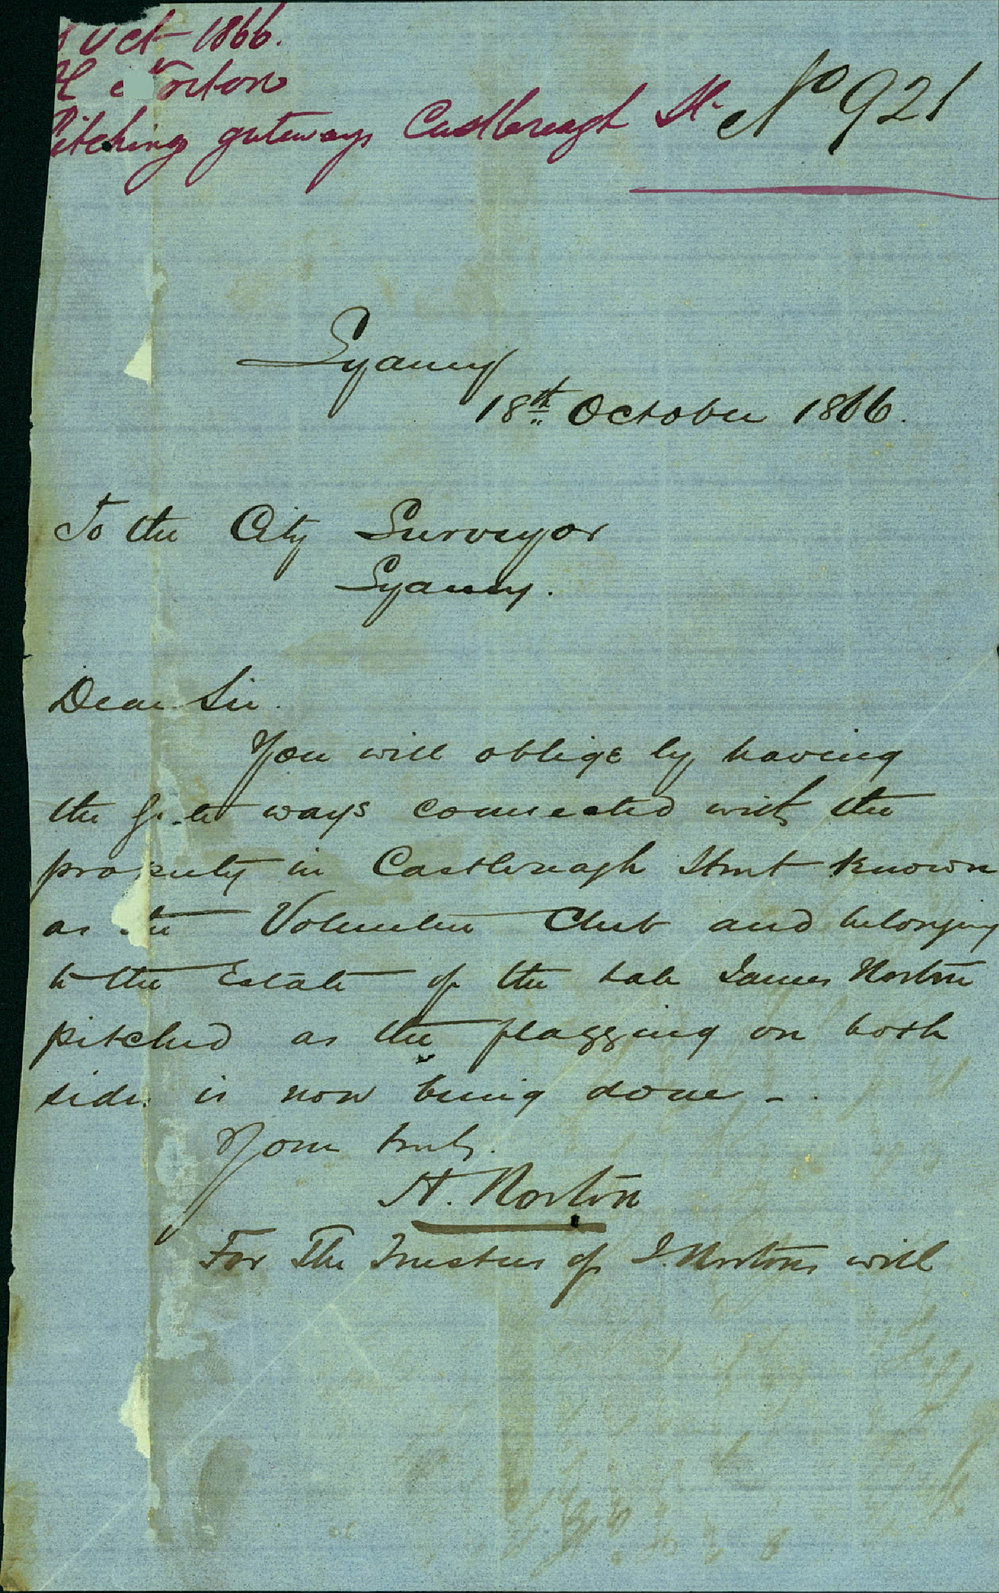 Oct 1866.
H Norton
Pitching gateways Castlereagh St No 921
Sydney
18th October 1866.
To the City Surveyor
Sydney.
Dear Sir.
You will oblige by having
the gate ways connected with the
property in Castlereagh Street known
as the Volunteer Club and belonging
to the Estate of the late James Norton
pitched as the flagging on both
sides is now being done -.
Yours truly.
H. Norton
For The Trustees of J. Nortons will